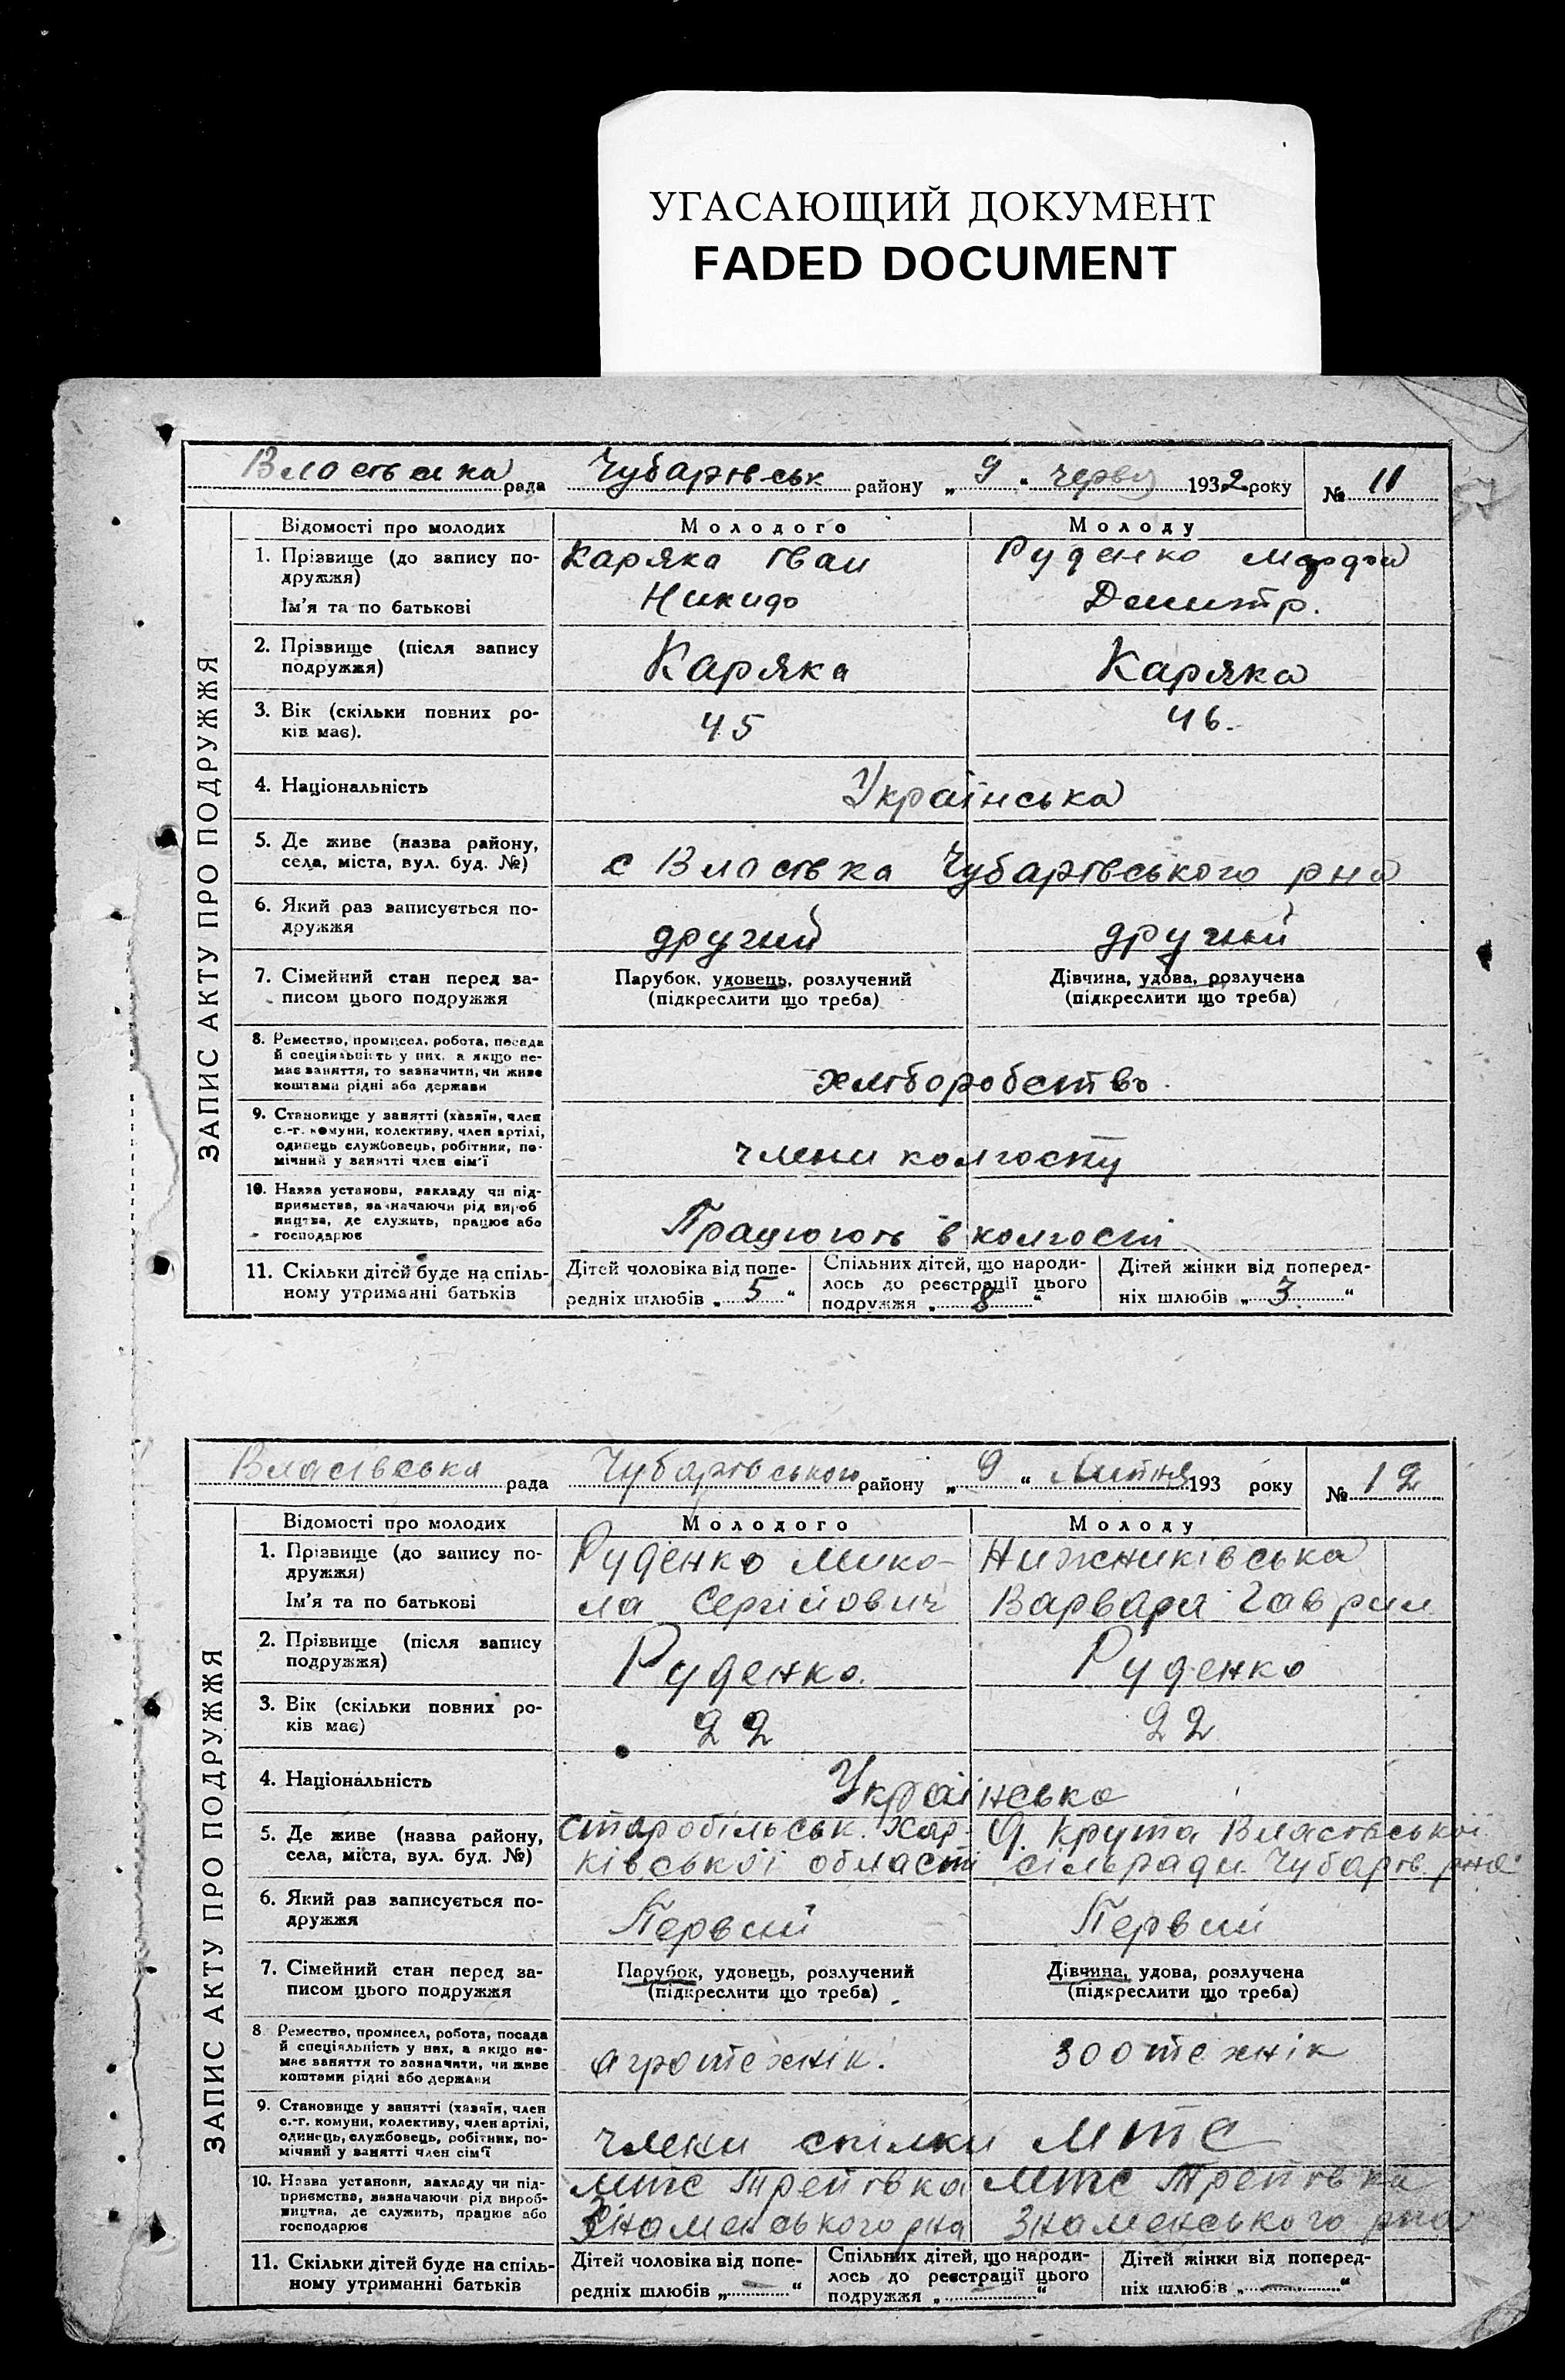 УГАСАЮЩИЙ ДОКУМЕНТ
FADED DOCUMENT
рада Чубарівськ району „ 9 “ черв 1932 року № 11
57
ЗАПИС АКТУ ПРО ПОДРУЖЖЯ
Відомості про молодих Молодого Молоду
1. Прізвище (до запису по- Каряка Іван Руденко
дружжя)
Ім'я та по батькові Никидо Демитр.
2. Прізвище (після запису Каряка Каряка
подружжя)
3. Вік (скільки повних ро- 45 46.
ків має).
4. Національність Українська
5. Де живе (назва району,
села, міста, вул. буд. №) с Власівка Чубарівського рна
6. Який раз записується по-
дружжя другий другий
7. Сімейний стан перед за- Парубок, удовець, розлучений Дівчина, удова, розлучена
писом цього подружжя (підкреслити що треба) (підкреслити що треба)
8. Ремество, промисел, робота, посада
й спеціяльність у них, а якщо не-
має заняття, то зазначити, чи живе хліборобство.
коштами рідні або держави
9. Становище у занятті (хазяїн, член
с.-г. комуни, колективу, член артілі,
одинець службовець, робітник, по- члени колгоспу
мічний у занятті член сім'ї
10. Назва установи, закладу чи під-
приємства, зазначаючи рід вироб
ництва, де служить, працює або Працюють в колгоспі
господарює
11. Скільки дітей буде на спіль- Дітей чоловіка від попе- Спільних дітей, що народи- Дітей жінки від поперед-
ному утриманні батьків редніх шлюбів „ 5 “ лось до реєстрації цього ніх шлюбів „ 3 “
подружжя „ 8 “
Власівська рада Чубарівського району „ 9 “ Липня 193 року № 12
ЗАПИС АКТУ ПРО ПОДРУЖЖЯ
Відомості про молодих Молодого Молоду
1. Прізвище (до запису по- Руденко Мико- Нижниківська
дружжя)
Ім'я та по батькові ла Сергійович Варвара Гаврил
2. Прізвище (після запису Руденко. Руденко
подружжя)
3. Вік (скільки повних ро- 22 22
ків має)
4. Національність Українсько
5. Де живе (назва району, Старобільськ. Хар- Крута Власівської
села, міста, вул. буд. №) ківської області сільради Чубарів. рна
6. Який раз записується по- Первий Первий
дружжя
7. Сімейний стан перед за- Парубок, удовець, розлучений Дівчина, удова, розлучена
писом цього подружжя (підкреслити що треба) (підкреслити що треба)
8 Ремество, промисел, робота, посада
й спеціяльність у них, а якщо не- агротехнік. зоотехнік
має заняття то зазначити, чи живе
коштами рідні або держави
9. Становище у занятті (хазяїн, член
с.-г. комуни, колективу, член артілі,
одинець, службовець, робітник, по- члени спілки МТС
мічний у занятті член сім'ї
10. Назва установи, закладу чи під- МТС Трепівка МТС Трепівка
приємства, зазначаючи рід вироб-
ництва, де служить, працює або Знаменського рна Знаменського рна
господарює
11. Скільки дітей буде на спіль- Дітей чоловіка від попе- Спільних дітей, що народи- Дітей жінки від поперед-
ному утриманні батьків редніх шлюбів „ — “ лось до реєстрації цього ніх шлюбів „ — “
подружжя „ — “